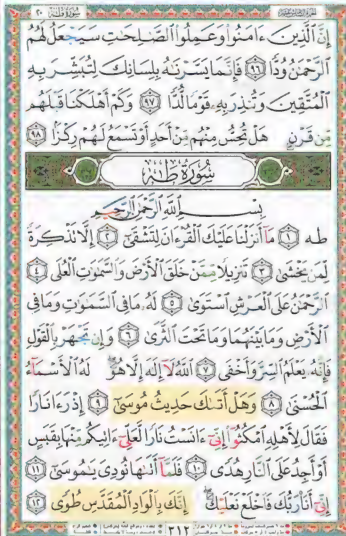 سُورَةُ طه ٢٠
إِنَّ ٱلَّذِينَ ءَامَنُوا۟ وَعَمِلُوا۟ ٱلصَّٰلِحَٰتِ سَيَجْعَلُ لَهُمُ
ٱلرَّحْمَٰنُ وُدًّا ٩٦ فَإِنَّمَا يَسَّرْنَٰهُ بِلِسَانِكَ لِتُبَشِّرَ بِهِ
ٱلْمُتَّقِينَ وَتُنذِرَ بِهِۦ قَوْمًا لُّدًّا ٩٧ وَكَمْ أَهْلَكْنَا قَبْلَهُم
مِّن قَرْنٍ هَلْ تُحِسُّ مِنْهُم مِّنْ أَحَدٍ أَوْ تَسْمَعُ لَهُمْ رِكْزًۢا ٩٨
سُورَةُ طه
بِسْمِ ٱللَّهِ ٱلرَّحْمَٰنِ ٱلرَّحِيمِ
طه ١ مَآ أَنزَلْنَا عَلَيْكَ ٱلْقُرْءَانَ لِتَشْقَىٰٓ ٢ إِلَّا تَذْكِرَةً
لِّمَن يَخْشَىٰ ٣ تَنزِيلًا مِّمَّنْ خَلَقَ ٱلْأَرْضَ وَٱلسَّمَٰوَٰتِ ٱلْعُلَى ٤
ٱلرَّحْمَٰنُ عَلَى ٱلْعَرْشِ ٱسْتَوَىٰ ٥ لَهُۥ مَا فِى ٱلسَّمَٰوَٰتِ وَمَا فِى
ٱلْأَرْضِ وَمَا بَيْنَهُمَا وَمَا تَحْتَ ٱلثَّرَىٰ ٦ وَإِن تَجْهَرْ بِٱلْقَوْلِ
فَإِنَّهُۥ يَعْلَمُ ٱلسِّرَّ وَأَخْفَى ٧ ٱللَّهُ لَآ إِلَٰهَ إِلَّا هُوَ لَهُ ٱلْأَسْمَآءُ
ٱلْحُسْنَىٰ ٨ وَهَلْ أَتَىٰكَ حَدِيثُ مُوسَىٰٓ ٩ إِذْ رَءَا نَارًا
فَقَالَ لِأَهْلِهِ ٱمْكُثُوٓا۟ إِنِّىٓ ءَانَسْتُ نَارًا لَّعَلِّىٓ ءَاتِيكُم مِّنْهَا بِقَبَسٍ
أَوْ أَجِدُ عَلَى ٱلنَّارِ هُدًى ١٠ فَلَمَّآ أَتَىٰهَا نُودِىَ يَٰمُوسَىٰٓ ١١
إِنِّىٓ أَنَا۠ رَبُّكَ فَٱخْلَعْ نَعْلَيْكَ إِنَّكَ بِٱلْوَادِ ٱلْمُقَدَّسِ طُوًى ١٢
٣١٢